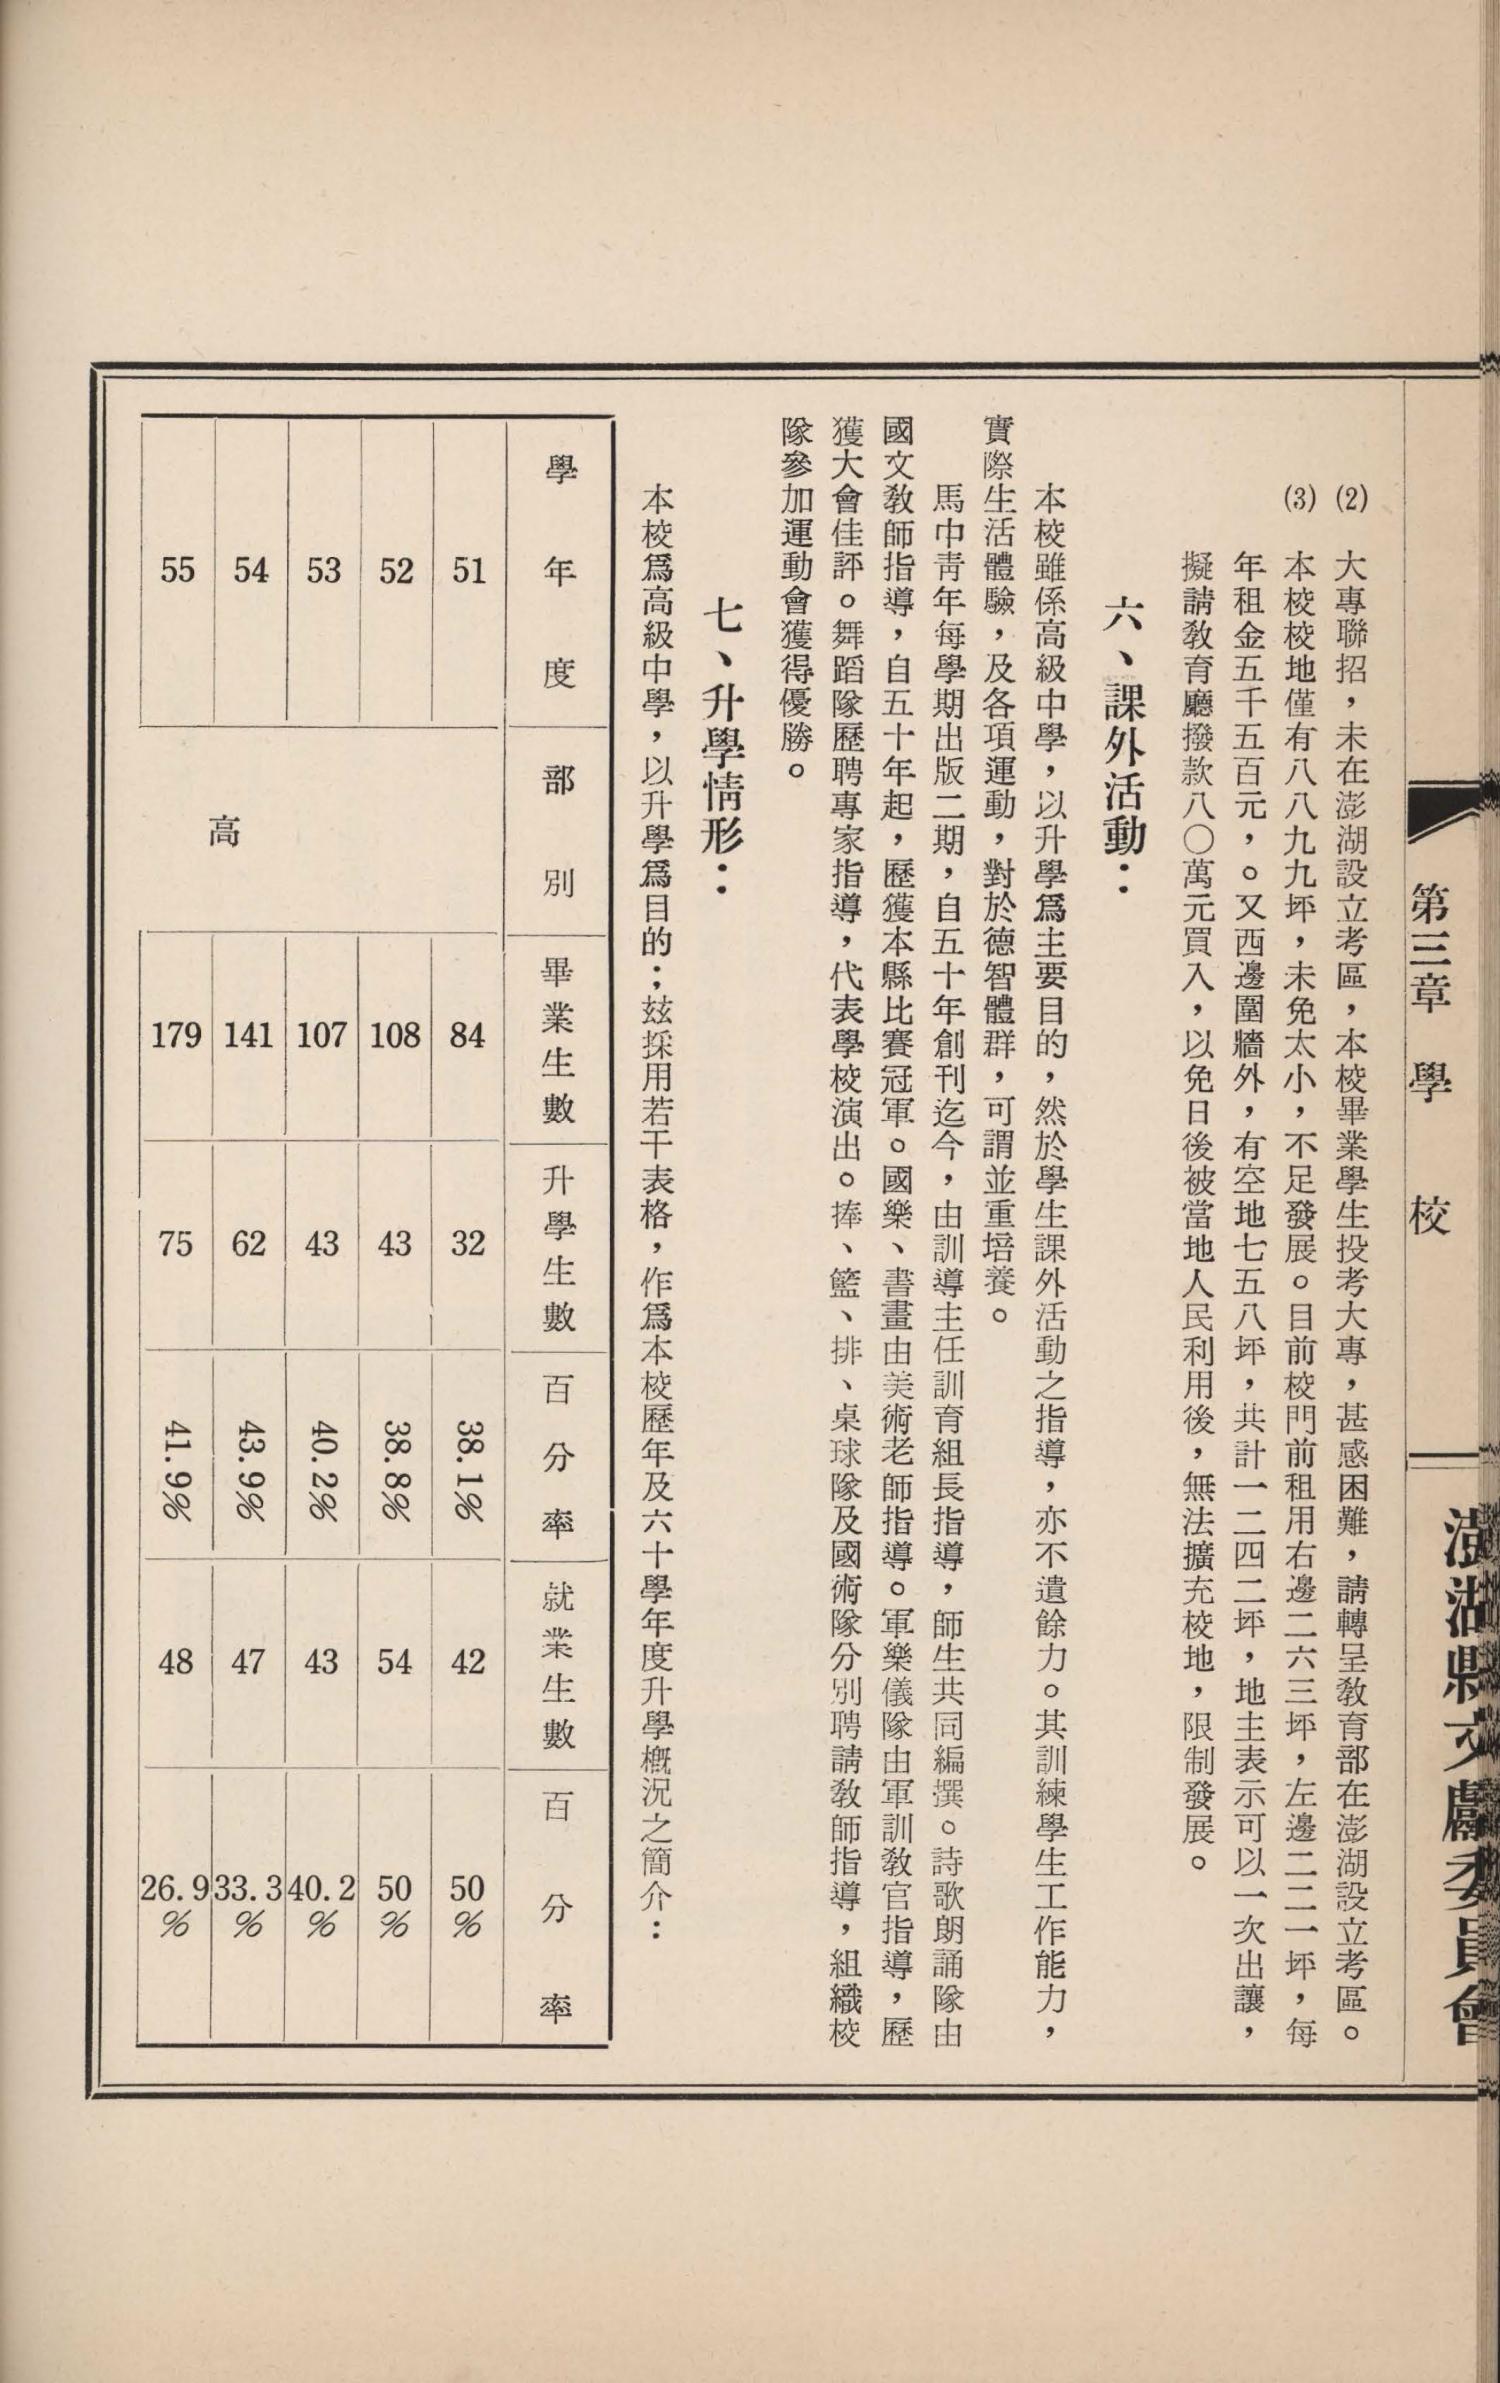 第三章 學校
澎湖縣文獻委員會
(2) 大專聯招，未在澎湖設立考區，本校畢業學生投考大專，甚感困難，請轉呈教育部在澎湖設立考區。
(3) 本校校地僅有八八九九坪，未免太小，不足發展。目前校門前租用右邊二六三坪，左邊二二一坪，每
年租金五千五百元，。又西邊圍牆外，有空地七五八坪，共計一二四二坪，地主表示可以一次出讓，
擬請教育廳撥款八〇萬元買入，以免日後被當地人民利用後，無法擴充校地，限制發展。
六、課外活動：
本校雖係高級中學，以升學爲主要目的，然於學生課外活動之指導，亦不遺餘力。其訓練學生工作能力，
實際生活體驗，及各項運動，對於德智體群，可謂並重培養。
馬中青年每學期出版二期，自五十年創刊迄今，由訓導主任訓育組長指導，師生共同編撰。詩歌朗誦隊由
國文教師指導，自五十年起，歷獲本縣比賽冠軍。國樂、書畫由美術老師指導。軍樂儀隊由軍訓教官指導，歷
獲大會佳評。舞蹈隊歷聘專家指導，代表學校演出。捧、籃、排、桌球隊及國術隊分別聘請教師指導，組織校
隊參加運動會獲得優勝。
七、升學情形：
本校爲高級中學，以升學爲目的；玆採用若干表格，作爲本校歷年及六十學年度升學槪況之簡介：
學年度 部別 畢業生數 升學生數 百分率 就業生數 百分率
51 84 32 38.1% 42 50%
52 108 43 38.8% 54 50%
53 107 43 40.2% 43 40.2%
高
54 141 62 43.9% 47 33.3%
55 179 75 41.9% 48 26.9%